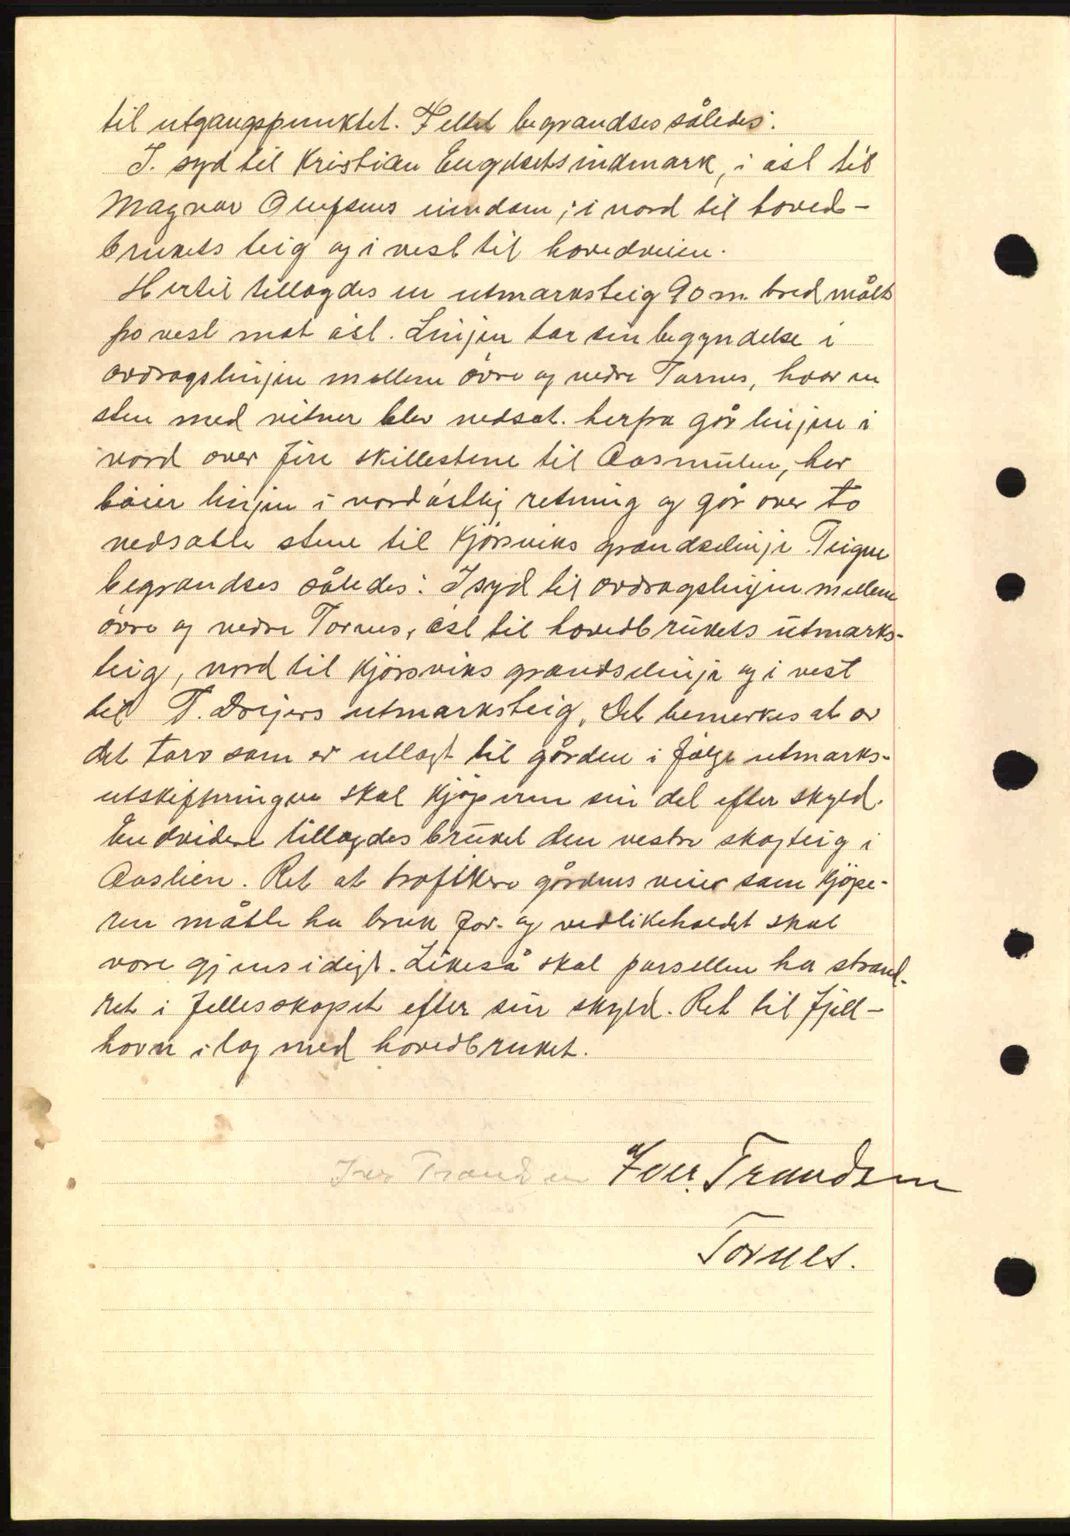 til utgangspunktet. Feltet begrandses således:
I. syd til Kristian Engdsets indmark, i øst til
Magnar Olufsens eiendom; i nord til hoved-
brukets teig og i vest til hovedveien.
Hertil tillagdes en utmarksteig 90 m. bred målt
fra vest mot øst. Linjen tar sin begyndelse i
avdragslinjen mellem övre og nedre Tornes, hvor en
sten med vitner blev nedsat. herfra går linjen i
nord over fire skillestene til Aasmulen, her
böier linjen i nordöstlig retning og går over to
nedsatte stene til Kjörsviks grandselinje. Teigen
begrandses således: I syd til avdragslinjen mellem
övre og nedre Tornes, öst til hovedbrukets utmarks-
teig, nord til Kjörsviks grandselinje og i vest
til T. Drejers utmarksteig. Det bemerkes at av
det torv som er utlagt til gården i fölge utmarks-
utskiftningen skal kjöperen sin del efter skyld.
Endvidere tillagdes bruket den vestre skogteig i
Aaslien. Ret at trafikere gårdens veier som kjöpe-
ren måtte ha bruk for- og vedlikeholdet skal
være gjensidigt. Likeså skal parsellen ha strand-
ret i fellesskapet efter sin skyld. Ret til fjell-
havn i lag med hovedbruket.
Iver Trandsen Iver. Trandsen
Tornes.